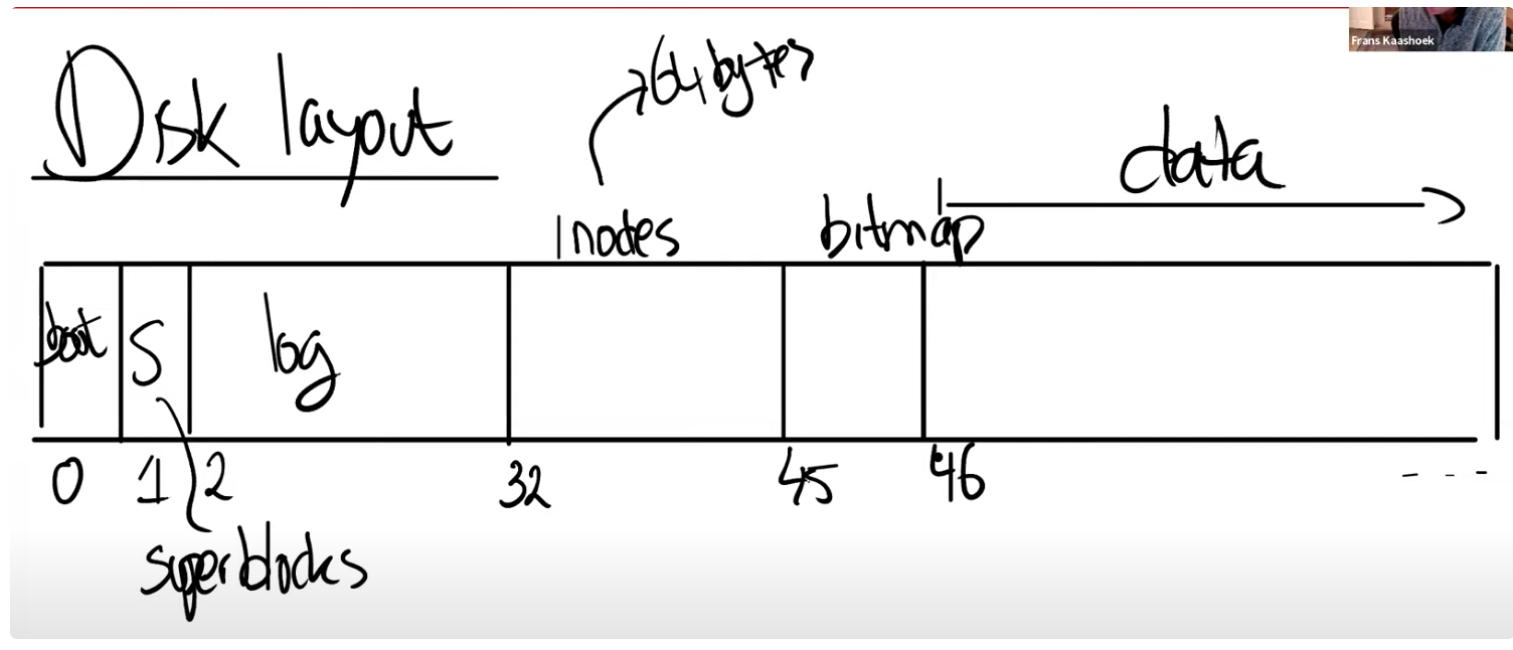 Frans Kaashoek
Disk layout
64 bytes
data
inodes
bitmap
boot
S
log
0
1
2
32
45
46
superblocks